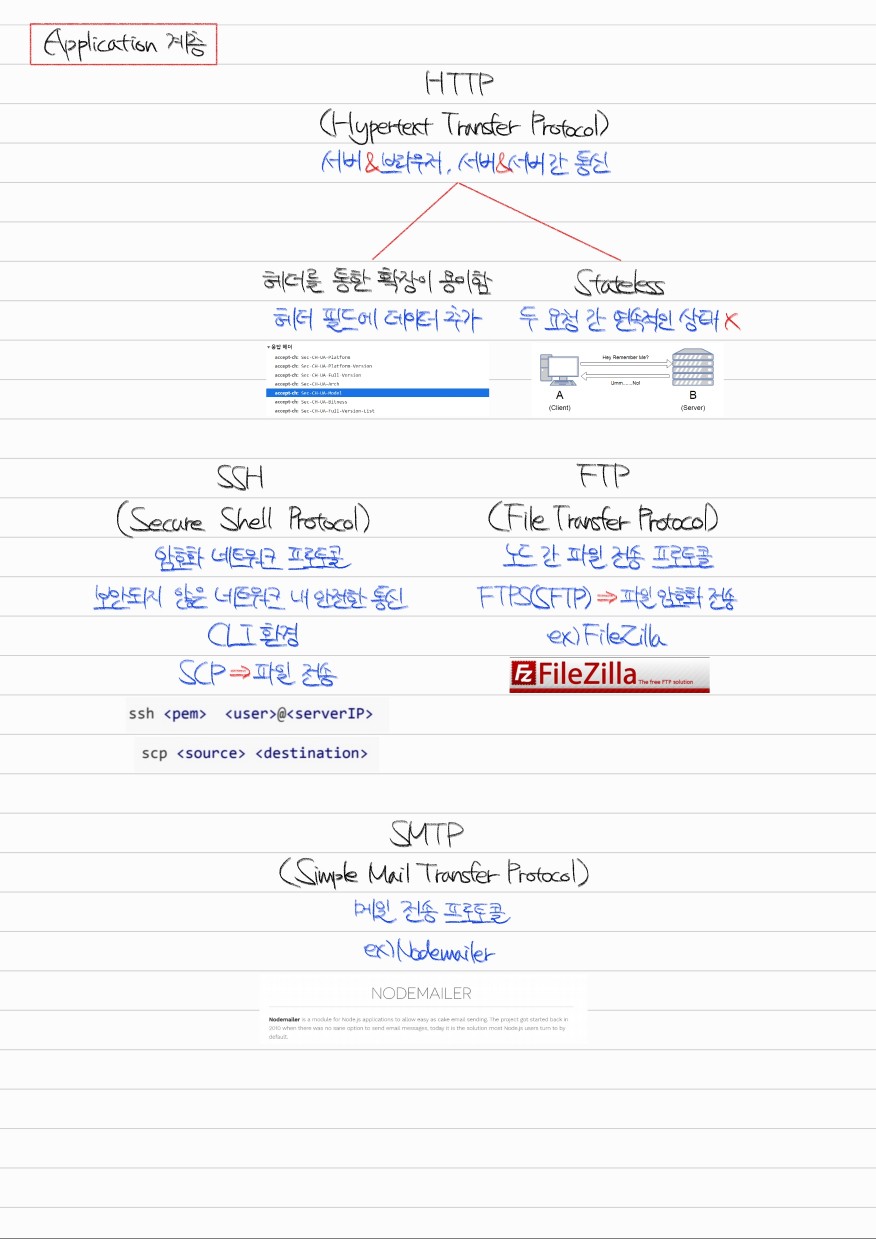 Application 계층
HTTP
(Hypertext Transfer Protocol)
서버&브라우저, 서버&서버 간 통신
헤더를 통한 확장이 용이함
헤더 필드에 데이터 추가
▼ 응답 헤더
accept-ch: Sec-CH-UA-Platform
accept-ch: Sec-CH-UA-Platform-Version
accept-ch: Sec-CH-UA-Full-Version
accept-ch: Sec-CH-UA-Arch
accept-ch: Sec-CH-UA-Model
accept-ch: Sec-CH-UA-Bitness
accept-ch: Sec-CH-UA-Full-Version-List
Stateless
두 요청 간 연속적인 상태 X
Hey Remember Me?
Umm......No!
A
(Client)
B
(Server)
SSH
(Secure Shell Protocol)
암호화 네트워크 프로토콜
보안되지 않은 네트워크 내 안전한 통신
CLI 환경
SCP ⇒ 파일 전송
ssh <pem> <user>@<serverIP>
scp <source> <destination>
FTP
(File Transfer Protocol)
노드 간 파일 전송 프로토콜
FTPS(SFTP) ⇒ 파일 암호화 전송
ex) FileZilla
Fz FileZilla The free FTP solution
SMTP
(Simple Mail Transfer Protocol)
메일 전송 프로토콜
ex) Nodemailer
NODEMAILER
Nodemailer is a module for Node.js applications to allow easy as cake email sending. The project got started back in
2010 when there was no sane option to send email messages, today it is the solution most Node.js users turn to by
default.